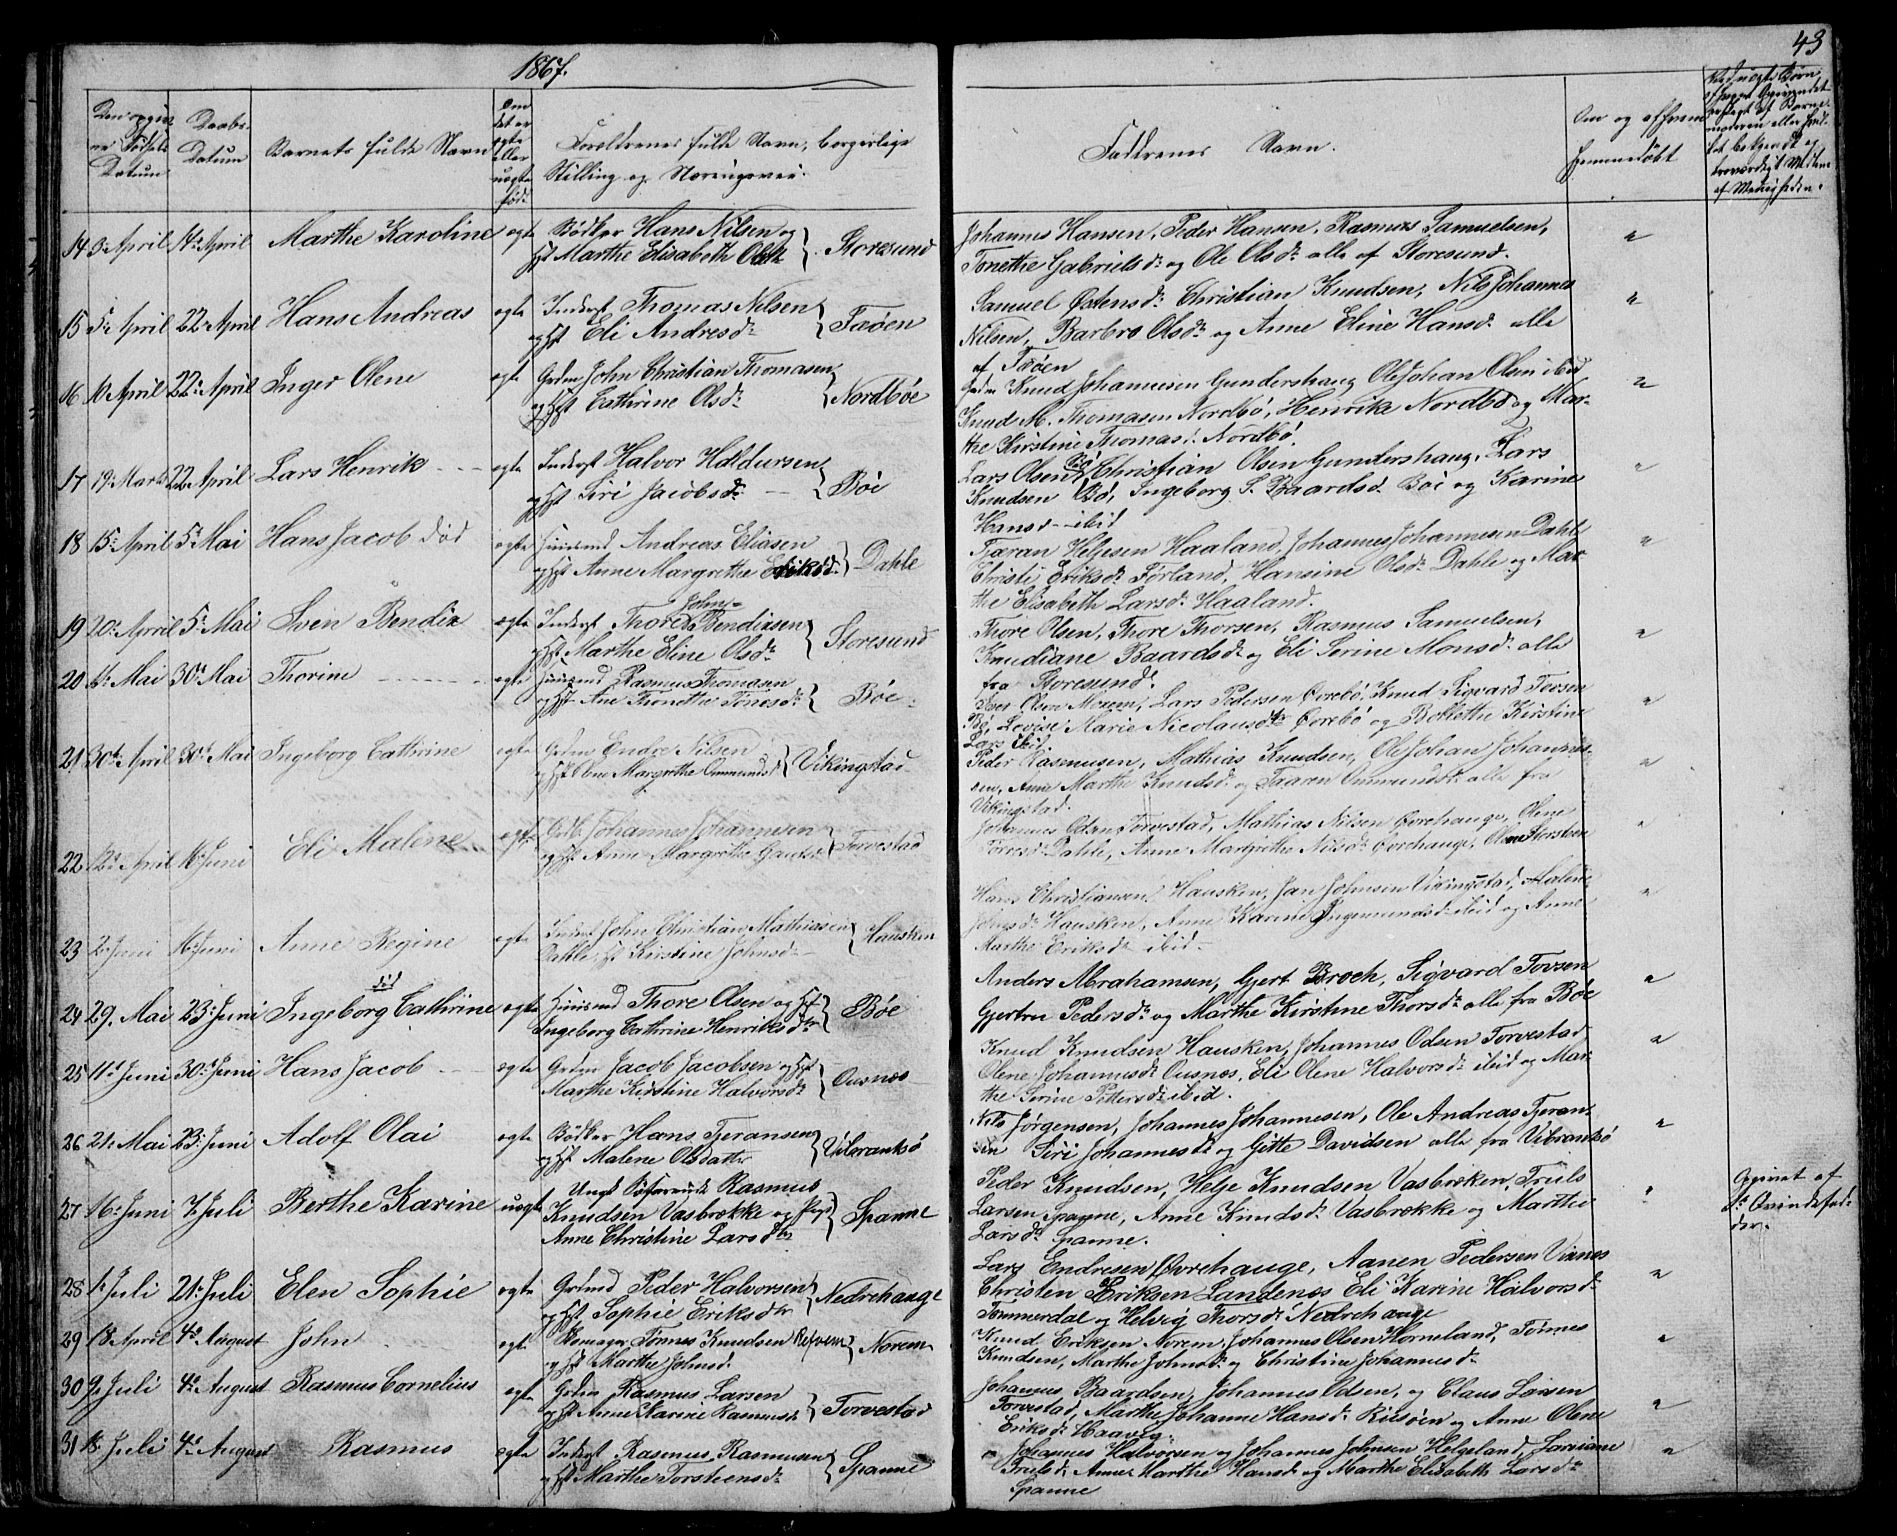 1867.
43
Daabs-
Datum
Barnets fulde Navn
Om
det er
egte
eller
uegte
født
Forældrenes fulde Navn, borgerlige
Stilling og Næringsvei.
Faddrenes Navn.
Om og af hvem
hjemmedøbt
14 3 April 14 April Marthe Karoline egte Bødker Hans Nilsen og
Hst Marthe Elisabeth Storesund
Johannes Hansen, Peder Hansen, Rasmus Samuelsen,
Tonethe Gabrielsdr og Ole Olsdr alle af Storesund.
15 5 April 22 April Hans Andreas egte Inderst Thomas Nilsen
og Hst Eli Andresdr Faøen
Samuel Østensdr Christian Knudsen, Nils Johannes
Nilsen, Barbro Olsdr og Anne Eline Hansdr alle
af Faøen
16 10 April 22 April Inger Olene egte Grdm John Christian Thomasen
og Hst Cathrine Olsdr Nordbøe
Grdm Knud Johannesen Gundershaug Ole Johan Olsen ibid
Knud M. Thomasen Nordbø, Henrike Nordbø og Mar-
the Kirstine Thomasd. Nordbø.
17 19 Marts 22 April Lars Henrik egte Inderst Halvor Haldursen
og Hst Siri Jacobsdr Bøe
Lars Olsen Christian Olsen Gundershaug, Lars
Knudsen Bø, Ingeborg S. Baardsd. Bøe og Karine
Hansd ibid
18 15 April 5 Mai Hans Jacob død egte Huusmd Andreas Eliasen
og Hst Anne Margrethe Dahle
Tjæran Helgesen Haaland, Johannes Johannesen Dahle
Christi Eriksdr Førland, Hansine Olsdr Dahle og Mar-
the Elisabeth Larsdr Haaland.
19 20 April 5 Mai Sven Bendix egte Inderst Thore John- Bendixsen
og Hst Marthe Eline Olsdr Storesund
Thore Olsen, Thore Thorsen, Rasmus Samuelsen,
Knudiane Baardsdr og Eli Serine Monsdr alle
fra Storesund.
20 Mai 30 Mai Thorine egte Huusmd Rasmus Thomasen
og Hst Ane Thonette Tonesdr Bøe
Olsen Lars Pedersen Knud Sigvard Tovsen
Bø, Lovise Marie Nicolausdtr og Bollette Kirstine
Lars ibid
21 30 April 30 Mai Ingeborg Cathrine egte Grdm Endre Nilsen
og Hst Olene Margrethe Ommundsd Vikingstad
Peder Rasmusen, Mathias Knudsen, Ole Johan Johannes-
sen, Anne Marthe Knudsdr og Taaren Ommundsdr alle fra
Vikingstad.
22 12 April 16 Juni Eli Malene egte Grdb. Johannes Johannesen
og Hst Anne Margrethe Gautsd Torvestad
Johannes Odsen Torvestad, Mathias Nilsen Øvrehauge, Olene
Torresdr Dahle, Anne Margrethe Nilsdr Øvrehauge, Olene Storsteen
23 2 Juni 16 Juni Anne Regine egte Inderst John Christian Mathiasen
Dahle, Hst Kirstine Johnsdr Hausken
Hans Christiansen Hausken, Jan Johnsen Vikingstad, Malene
Hausken, Anne Karine Ingemundsd ibid og Anne
Marthe Eriksdr ibid
24 29. Mai 23 Juni Ingeborg Cathrine egte Huusmd Thore Olsen og Hst
Ingeborg Cathrine Henriksdtr Bøe
Anders Abrahamsen, Gjert Broch, Sigvard Tovsen
Gjertru Pedersdr og Marthe Kirstine Thorsdr alle fra Bøe
25 11 Juni 30 Juni Hans Jacob egte Grdm Jacob Jacobsen og Hst
Marthe Kirstine Halvorsdr Ousnæs
Knud Knudsen Hausken, Johannes Odsen Torvestad
Olene Johannesdr Ousnæs, Eli Olene Halvorsdr ibid og Mar-
the Serine Pettersdr ibid.
26 21 Mai 23 Juni Adolf Olai egte Bødker Hans Tjeransen
og Hst Malene Olsdatter Vibrantsø
Nils Jørgensen, Johannes Johannesen, Ole Andreas Tjeran-
sen Siri Johannesdr og Gitte Davidsen alle fra Vibrantsø
27 16 Juni 7 Juli Berthe Karine uegte Ungk Rasmus
Knudsen Vasbrække og Pige
Anne Christine Larsdtr Spanne
Peder Knudsen, Helge Knudsen Vasbrækken, Truls
Larsen Spanne, Anne Knudsdr Vasbrække og Marthe
Larsdr Spanne.
28 1 Juli 21 Juli Elen Sophie egte Grdmd Peder Halvorsen
og Hst Sophie Eriksdtr Nedrehauge
Lars Endresen Øvrehauge, Aanen Pedersen Visnes
Christen Eriksen Landenæs Eli Karine Halvorsdr
Tommerdal og Helvig Thorsdr Nedrehauge
29 18 April 4 August John egte Tønnes Knudsen
og Hst Marthe Johnsd. Norem
Knud Eriksen Norem, Johannes Olsen Horneland, Tønnes
Knudsen, Marthe Johnsdr og Christine Johannesdr
30 9 Juli 4 August Rasmus Cornelius egte Grdm Rasmus Larsen
og Hst Anne Karine Rasmusd Torvestad
Johannes Baardsen, Johannes Odsen, og Claus Larsen
Torvestad, Marthe Johanne Hansdr og Anne Olene
Eriksd. Haavig.
31 18 Juli 4 August Rasmus egte Inderst Rasmus Rasmusen
og Hst Marthe Torstensdr Spanne
Johannes Halvorsen og Johannes Johnsen Helgeland,
Trulsdr Anne Marthe Hansdr og Marthe Elisabeth Larsdr
Spanne